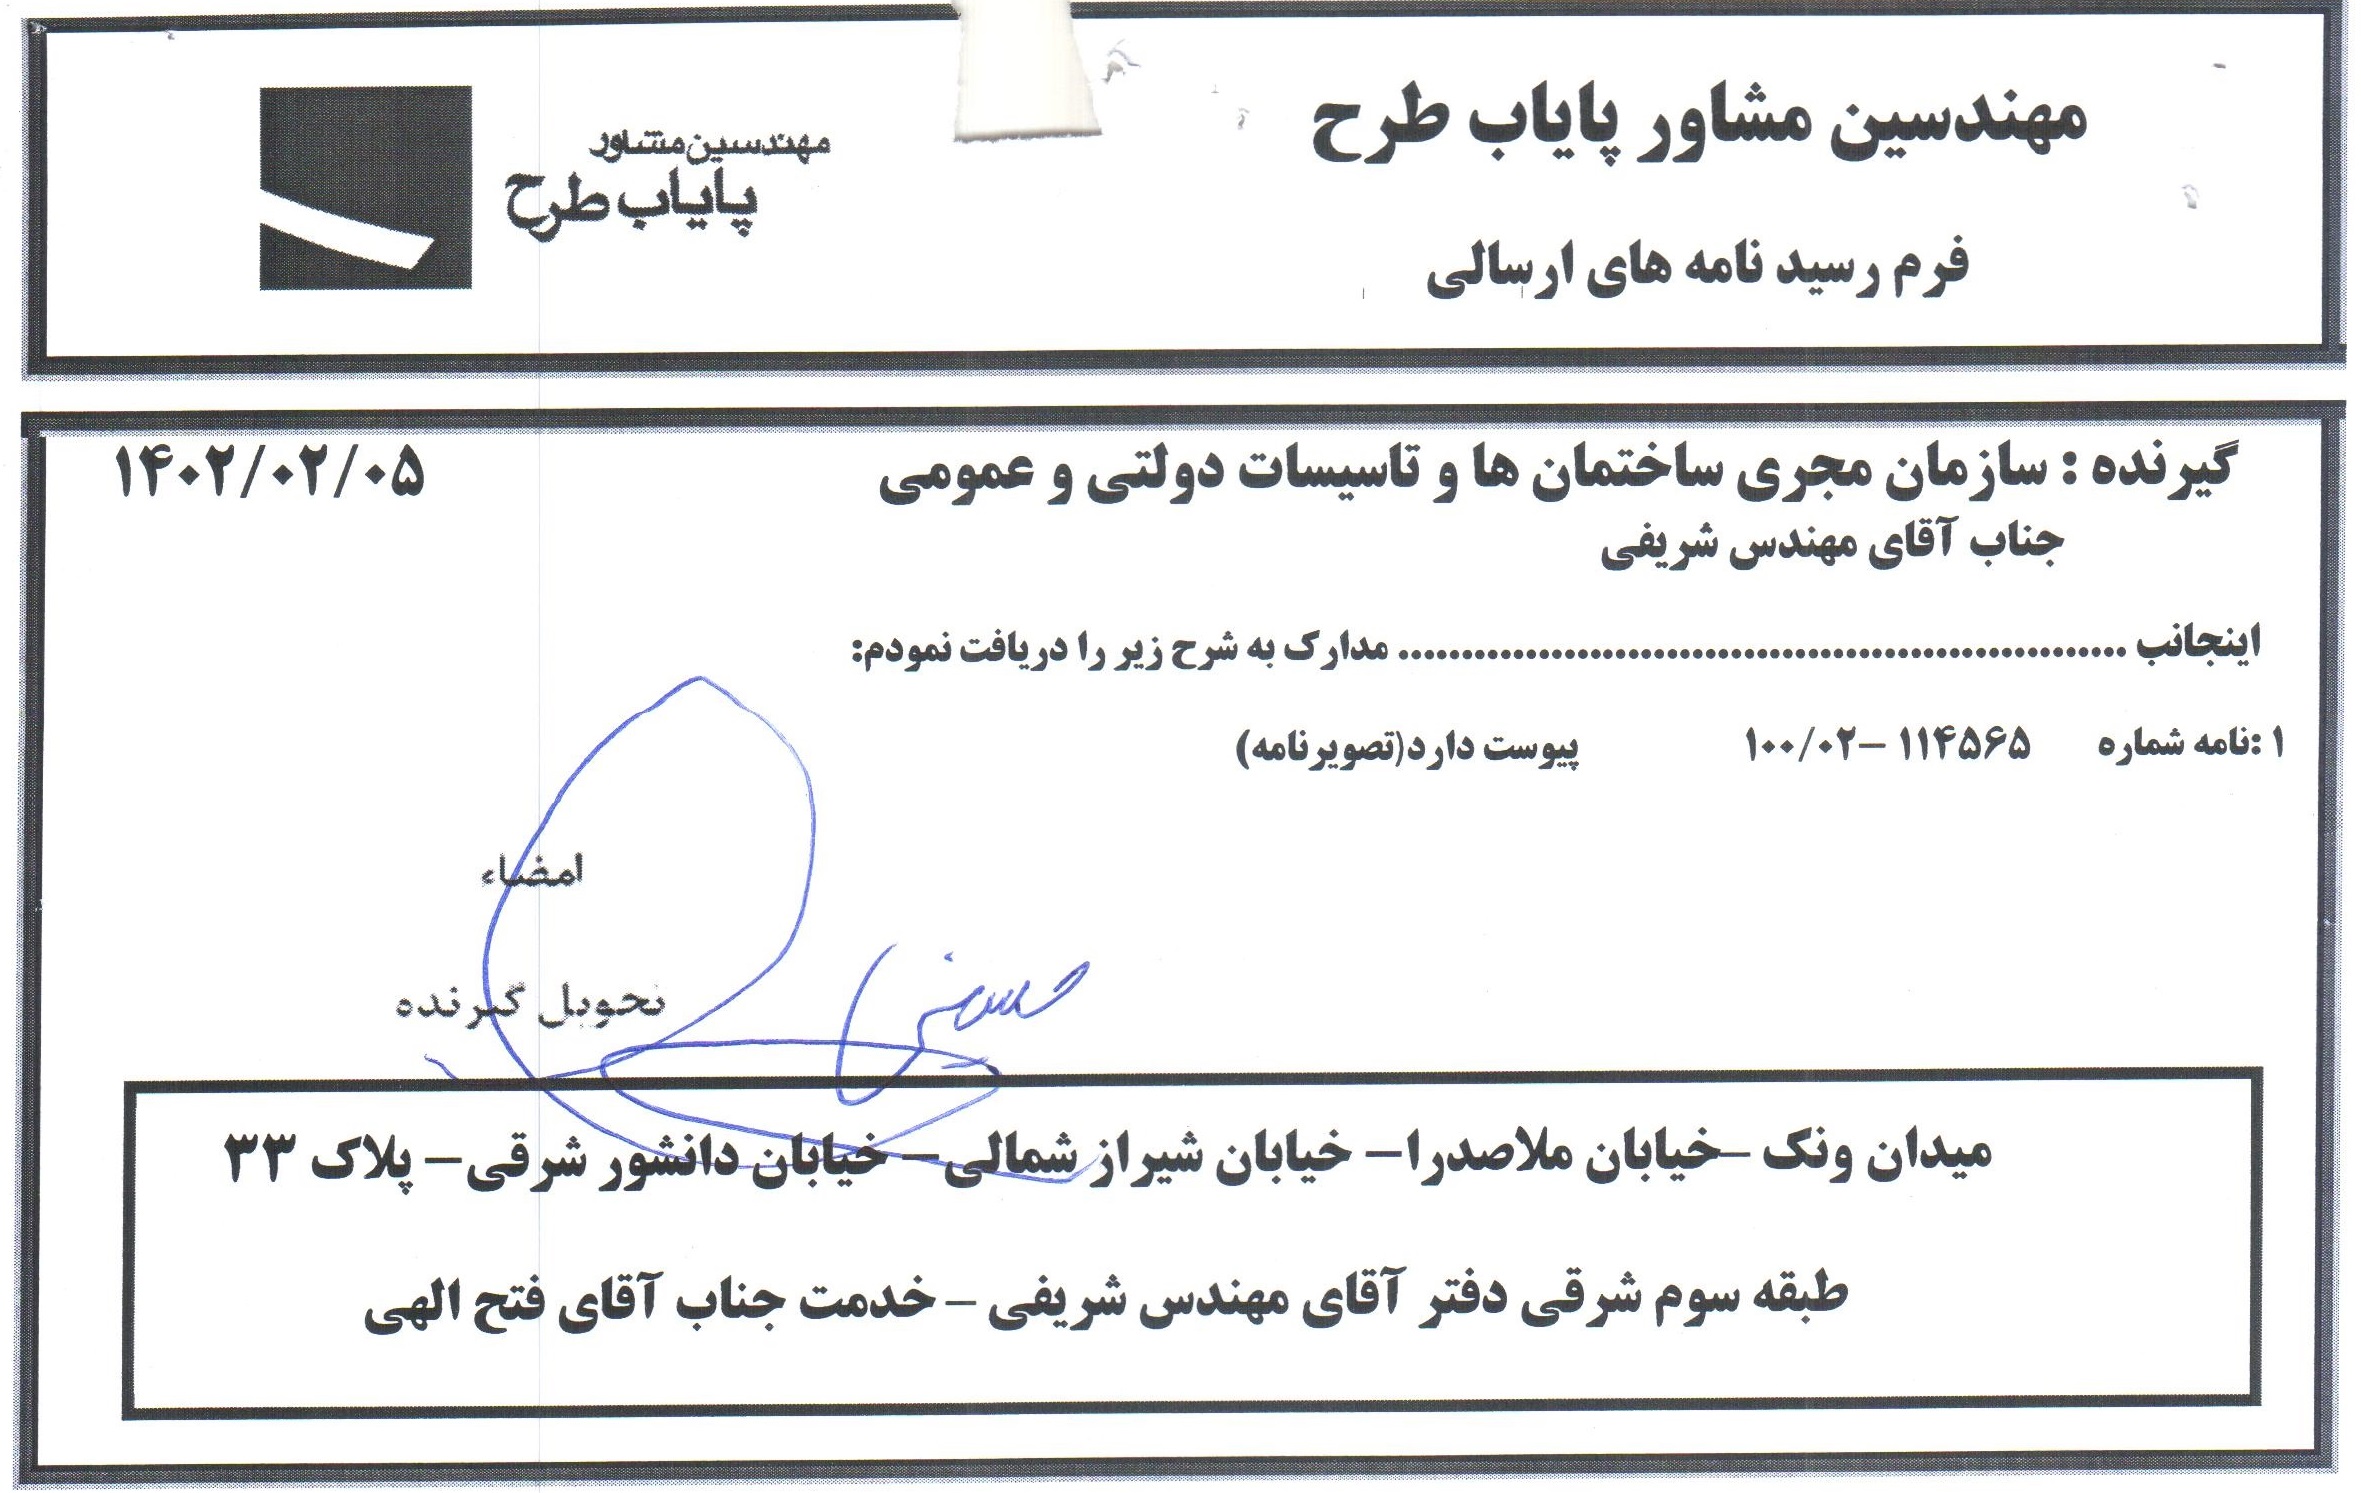 مهندسین مشاور پایاب طرح
مهندسین مشاور
پایاب طرح
فرم رسید نامه های ارسالی
گیرنده : سازمان مجری ساختمان ها و تاسیسات دولتی و عمومی
۱۴۰۲/۰۲/۰۵
جناب آقای مهندس شریفی
اینجانب ........................................................ مدارک به شرح زیر را دریافت نمودم:
۱ :نامه شماره ۱۱۴۵۶۵ –۱۰۰/۰۲ پیوست دارد(تصویرنامه)
امضاء
تحویل گیرنده
میدان ونک –خیابان ملاصدرا– خیابان شیراز شمالی– خیابان دانشور شرقی– پلاک ۳۳
طبقه سوم شرقی دفتر آقای مهندس شریفی – خدمت جناب آقای فتح الهی